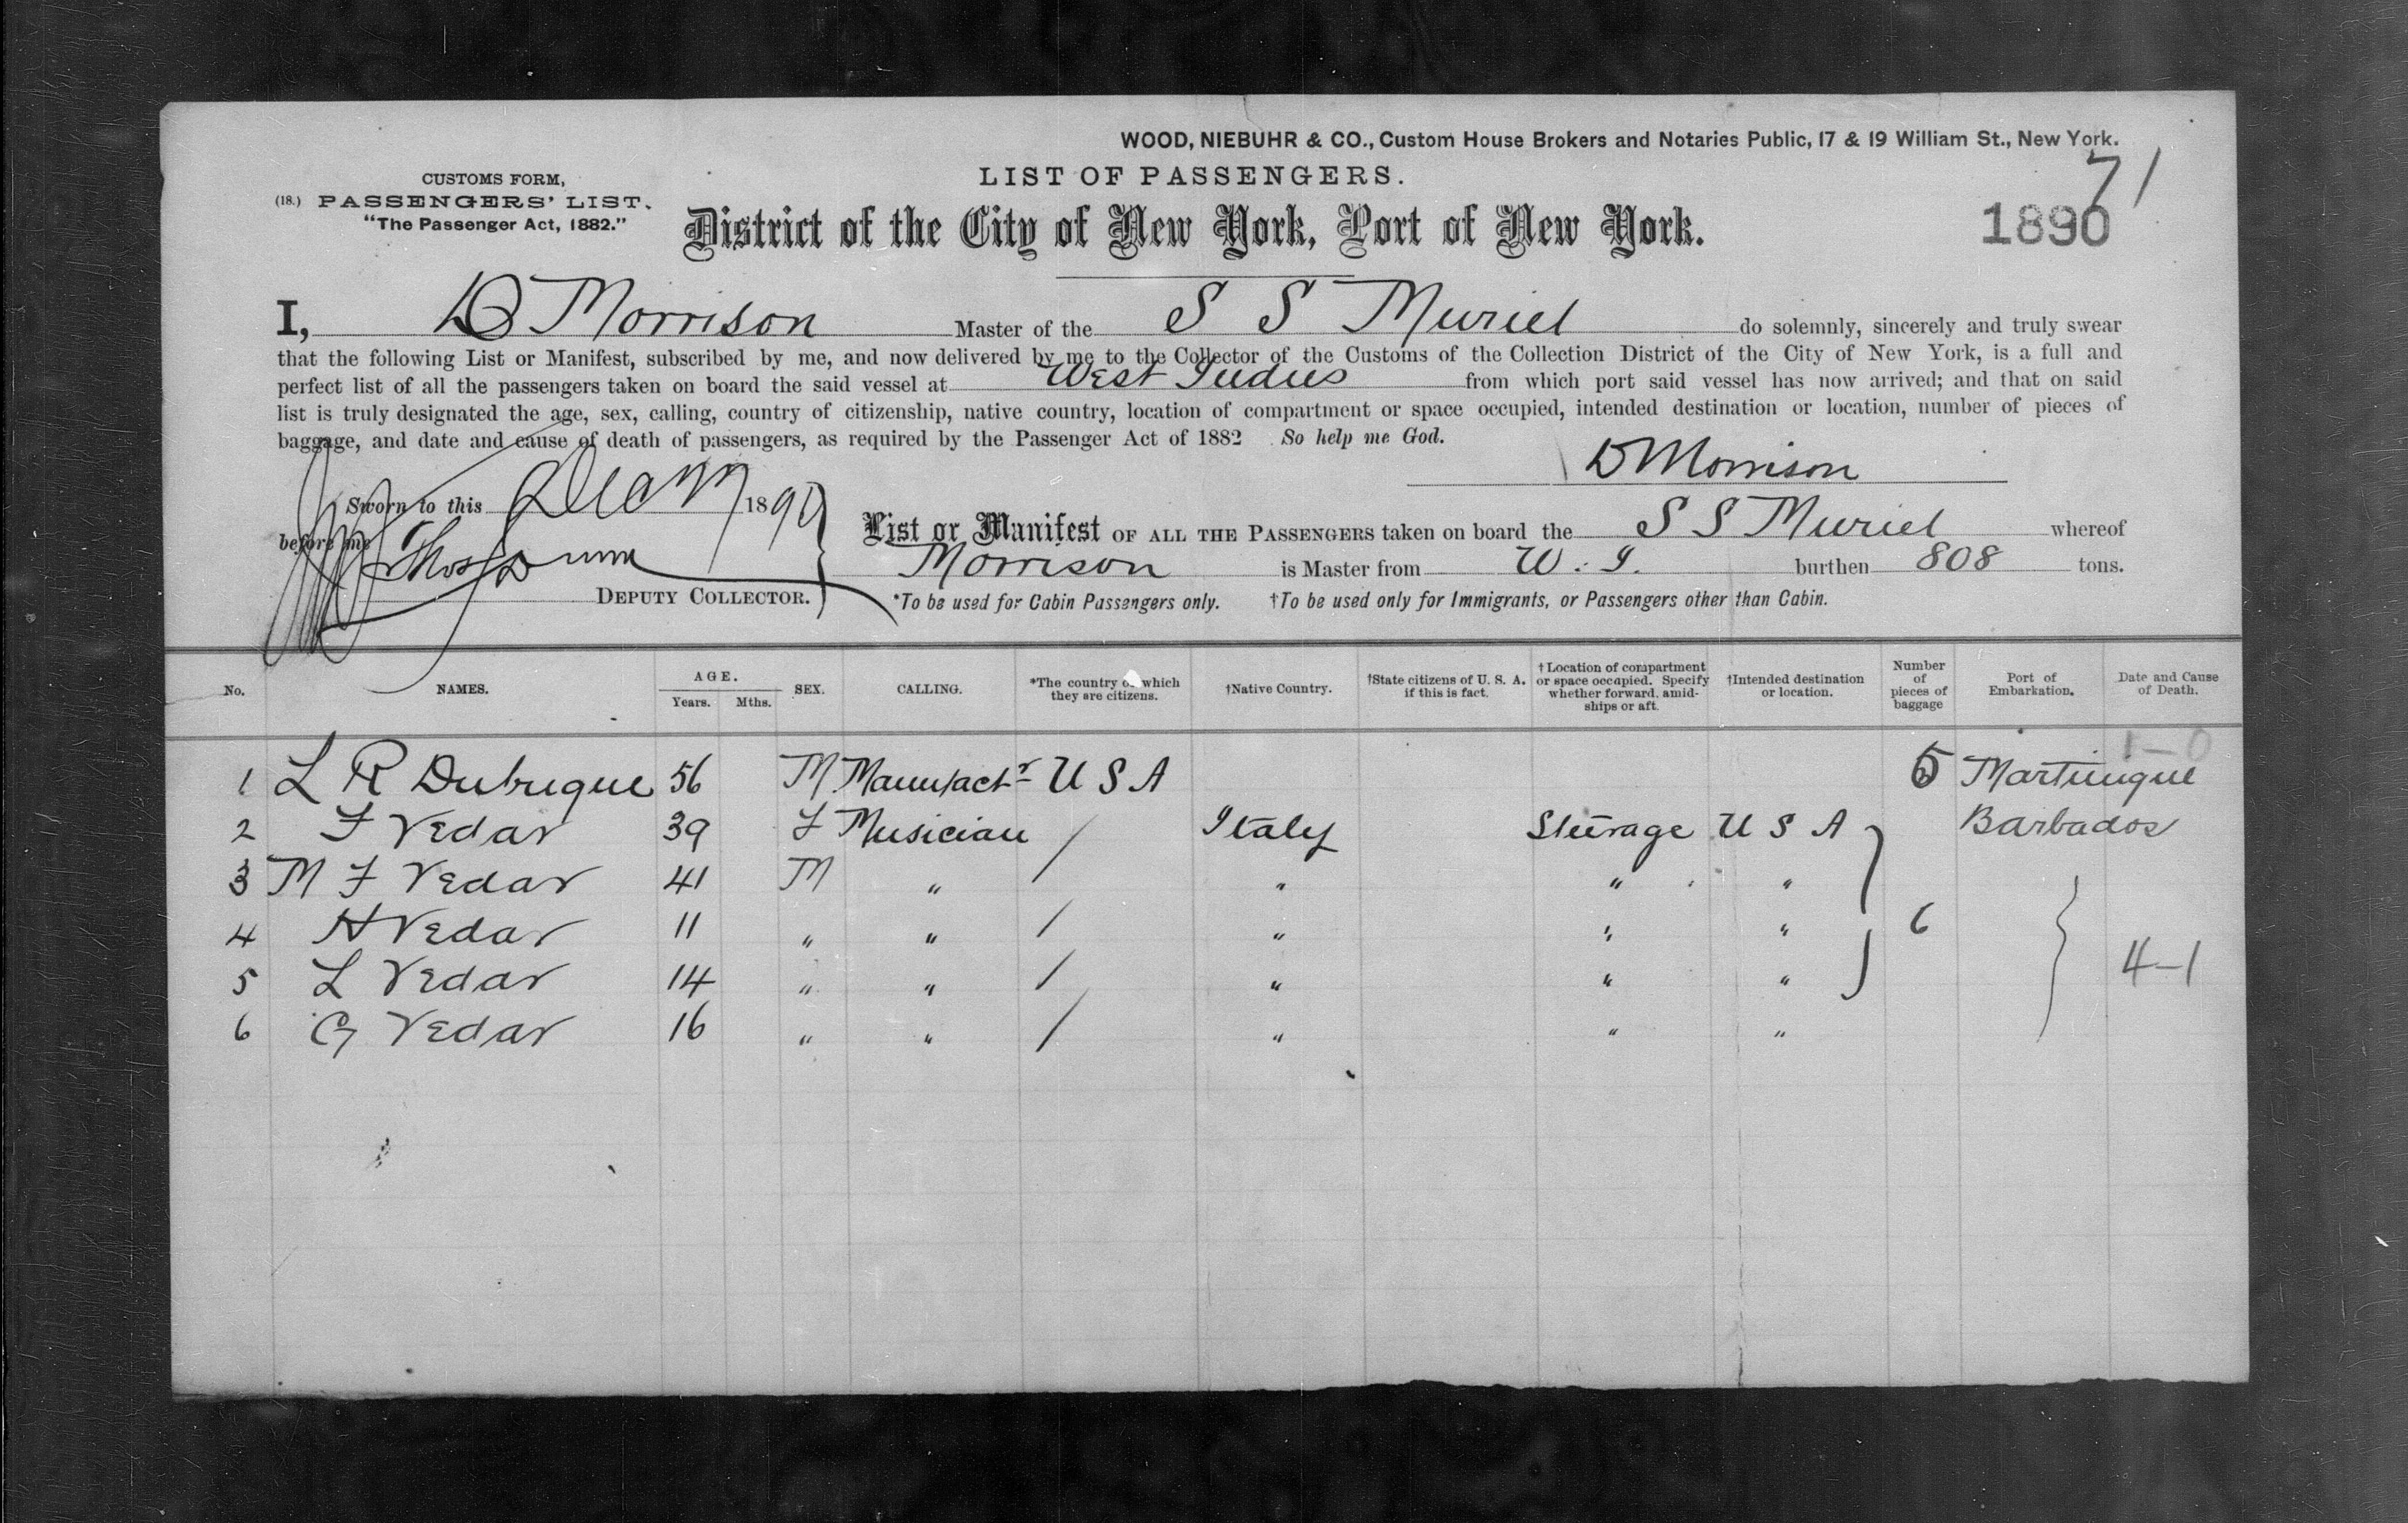 WOOD, NIEBUHR & CO., Custom House Brokers and Notaries Public, 17 & 19 William St., New York.
LIST OF PASSENGERS.
71
CUSTOMS FORM,
(18.) PASSENGERS' LIST.
"The Passenger Act, 1882."
District of the City of New York, Port of New York.
1890
I, D Morrison Master of the S S Muriel do solemnly, sincerely and truly swear
that the following List or Manifest, subscribed by me, and now delivered by me to the Collector of the Customs of the Collection District of the City of New York, is a full and
perfect list of all the passengers taken on board the said vessel at West Indies from which port said vessel has now arrived; and that on said
list is truly designated the age, sex, calling, country of citizenship, native country, location of compartment or space occupied, intended destination or location, number of pieces of
baggage, and date and cause of death of passengers, as required by the Passenger Act of 1882 So help me God.
D Morrison
Sworn to this 1890
before me Thos
DEPUTY COLLECTOR.
List or Manifest OF ALL THE PASSENGERS taken on board the S S Muriel whereof
Morrison is Master from W. I. burthen 808 tons.
*To be used for Cabin Passengers only. †To be used only for Immigrants, or Passengers other than Cabin.
No. NAMES. AGE. Years. Mths. SEX. CALLING. *The country of which they are citizens. †Native Country. †State citizens of U. S. A. if this is fact. †Location of compartment or space occupied. Specify whether forward, amidships or aft. †Intended destination or location. Number of pieces of baggage Port of Embarkation. Date and Cause of Death.
1-0
1 L R Dubuque 56 M Manufactr U S A 5 Martinique
2 F Vedar 39 F Musician / Italy Steerage U S A Barbados
3 M F Vedar 41 M " " " "
4 H Vedar 11 " " / " " " 6
5 L Vedar 14 " " / " " " 4-1
6 G Vedar 16 " " / " " "